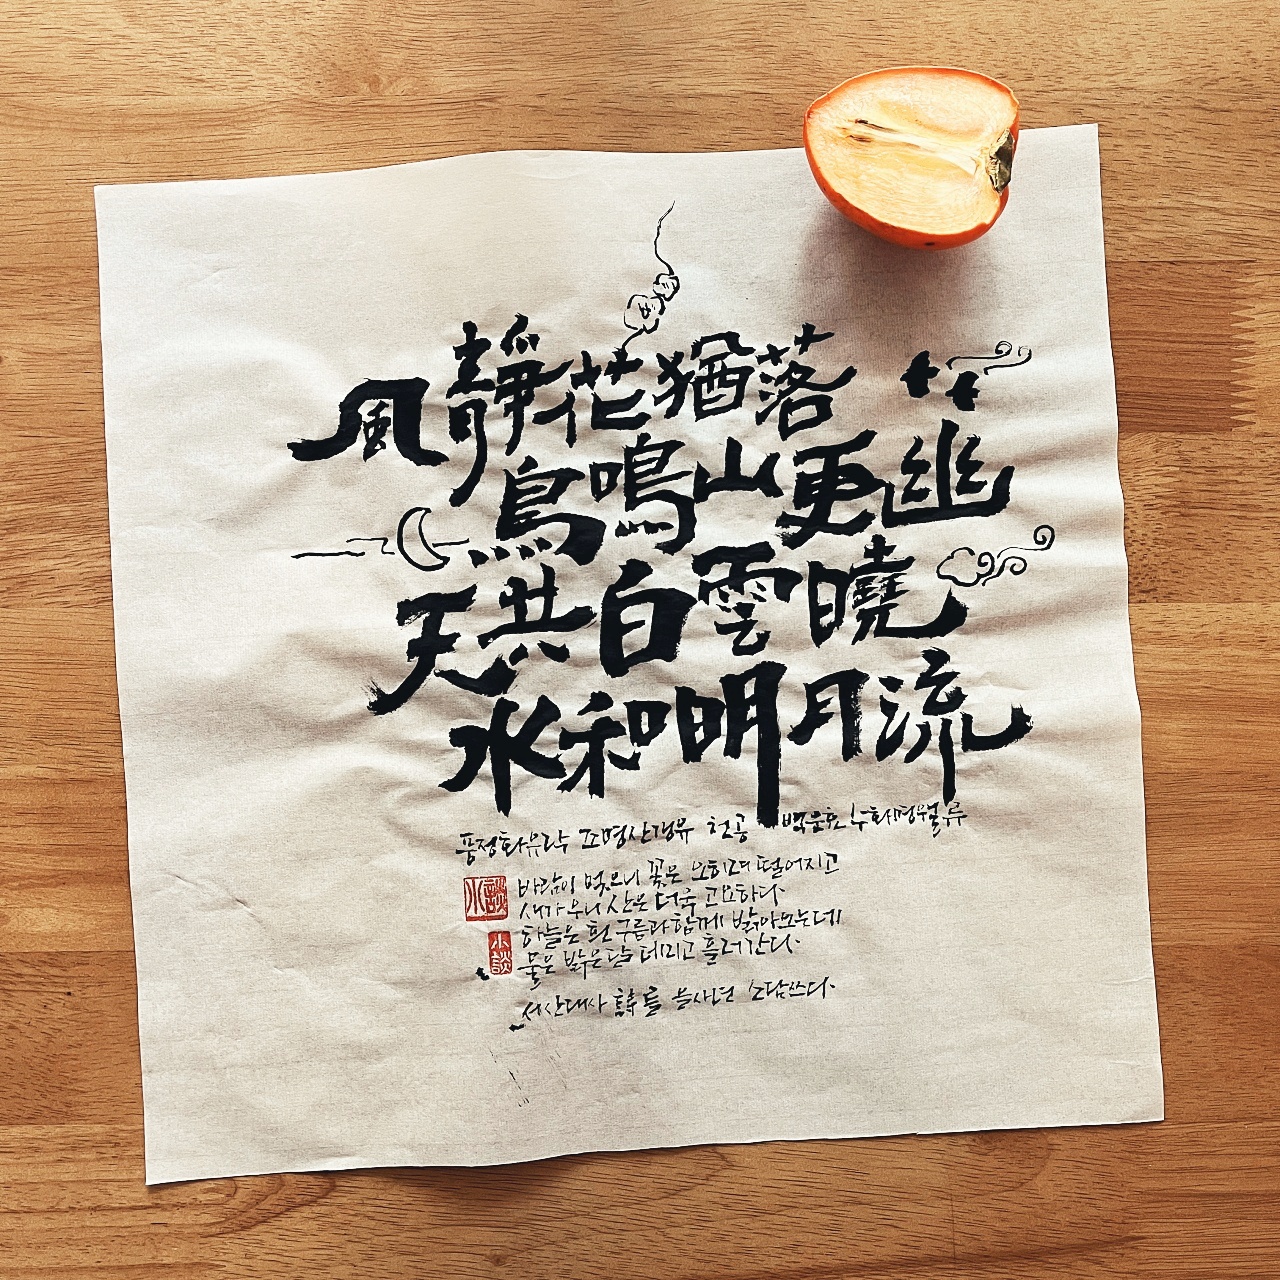 風靜花猶落
鳥鳴山更幽
天共白雲曉
水和明月流
풍정화유락 조명산갱유 천공백운효 수화명월류
바람이 멎으니 꽃은 오히려 떨어지고
새가 우니 산은 더욱 고요하다
하늘은 흰 구름과 함께 밝아오는데
물은 밝은 달 데리고 흘러간다.
서산대사 詩를 늘샘던 소담쓰다.
小談
小談